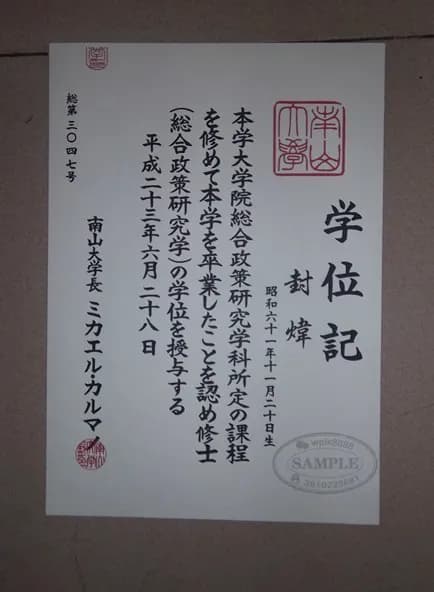 学位記
封煒
昭和六十一年十一月二十日生
本学大学院総合政策研究学科所定の課程
を修めて本学を卒業したことを認め修士
(総合政策研究学)の学位を授与する
平成二十三年六月二十八日
南山大学長 ミカエル・カルマノ
総第三〇四七号
南山大學
SAMPLE